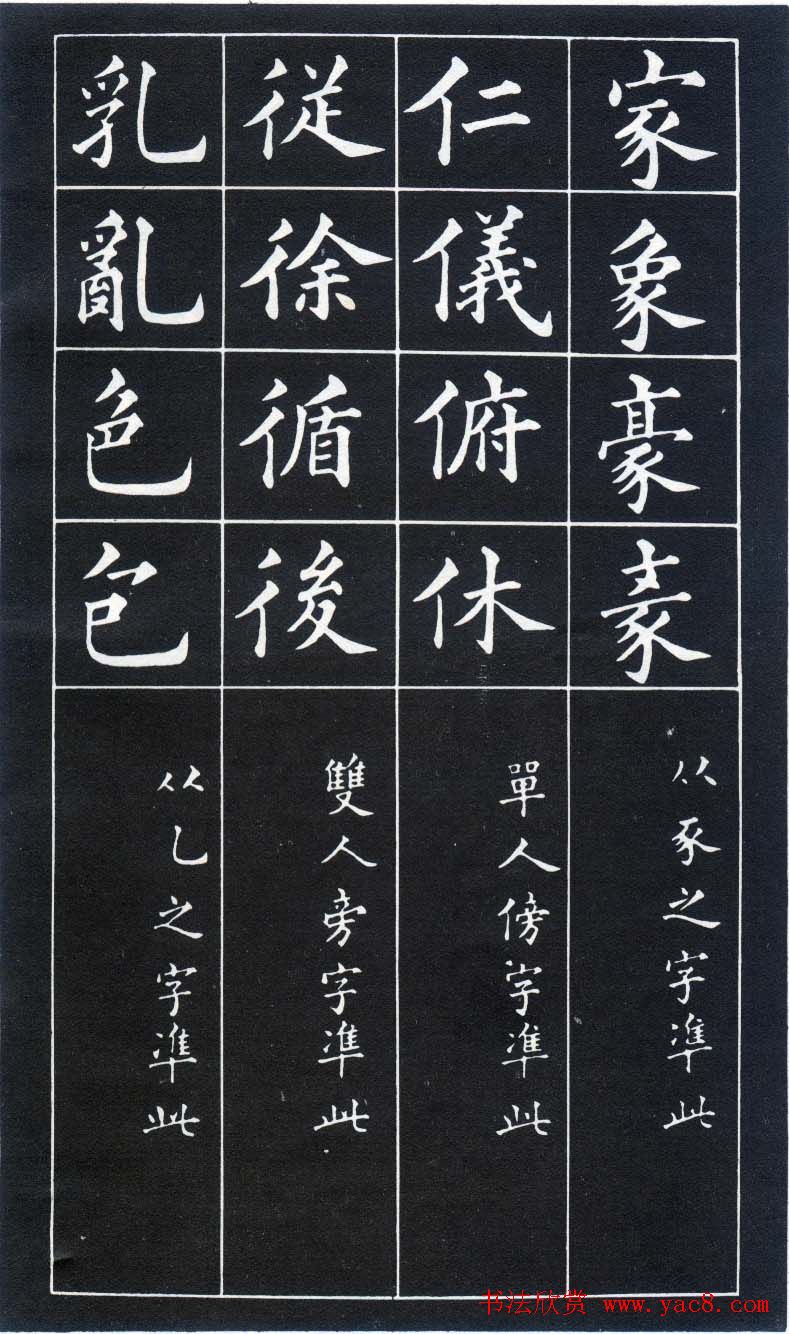 家象豪
从豕之字凖此
仁儀俯休
單人傍字凖此
従徐循後
雙人旁字凖此
乳亂色包
从乙之字凖此
书法欣赏 www.yac8.com